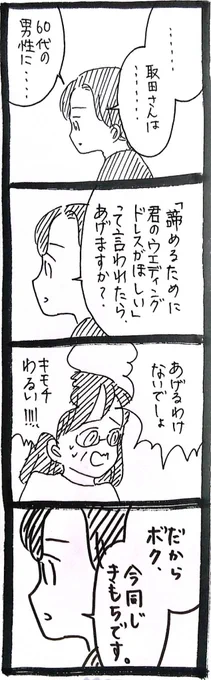 ‥‥‥
取田さんは
‥‥‥‥
60代の
男性に‥‥
「諦めるために
君のウエディング
ドレスがほしい」
って言われたら
あげますか?
あげるわけ
ないでしょ
キモチ
わるい!!!!
だから
ボク、
今同じ
きもちです。